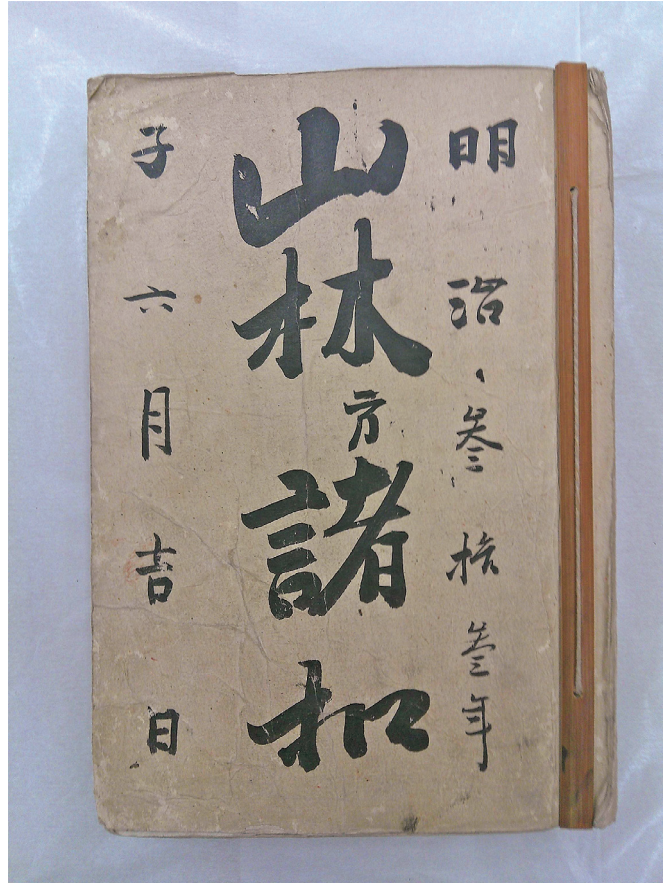 明治参拾参年
山林方諸扣
子六月吉日